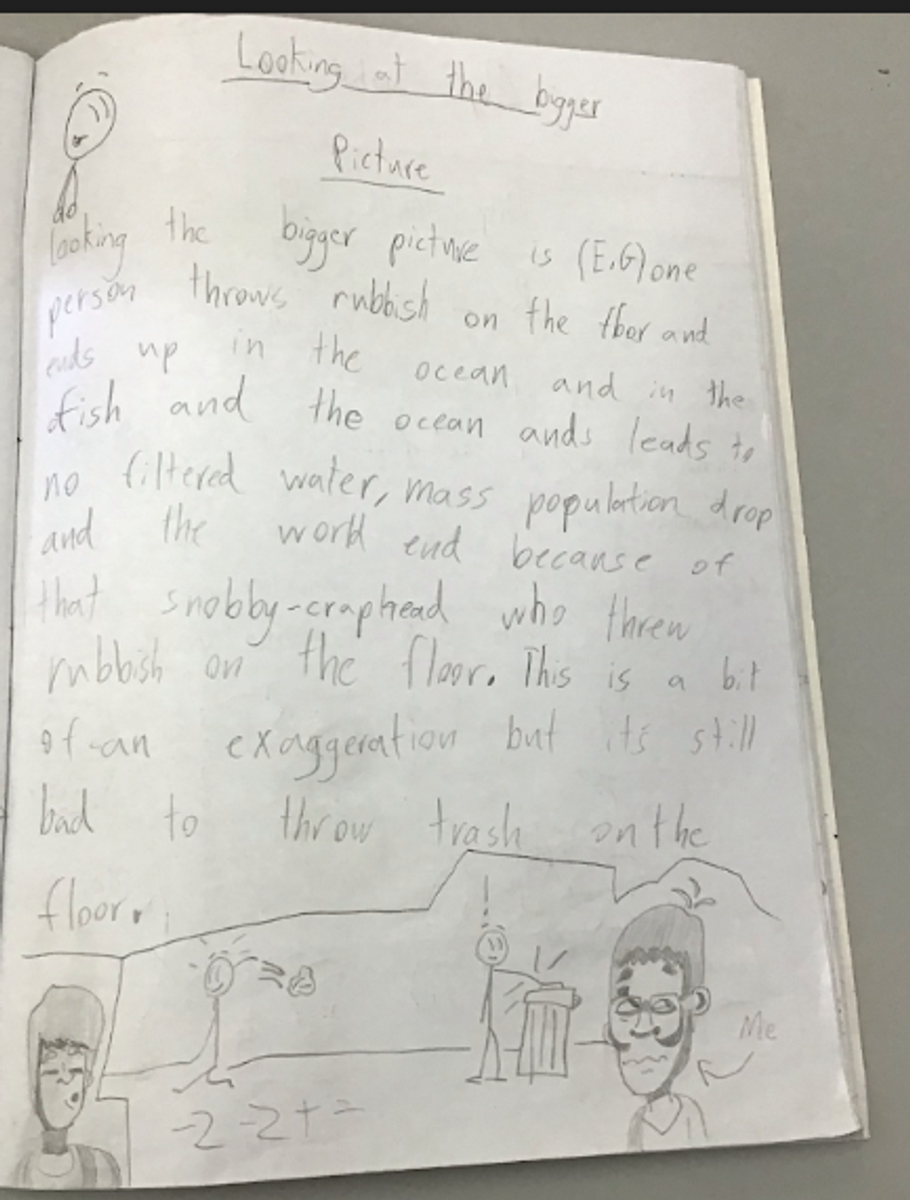 Looking at the bigger
Picture
looking the bigger picture is (E.G) one
person throws rubbish on the floor and
ends up in the ocean and in the
fish and the ocean ands leads to
no filtered water, mass population drop
and the world end because of
that snobby-craphead who threw
rubbish on the floor. This is a bit
of an exaggeration but its still
bad to throw trash on the
floor.
!
Me
-2 -2 + =